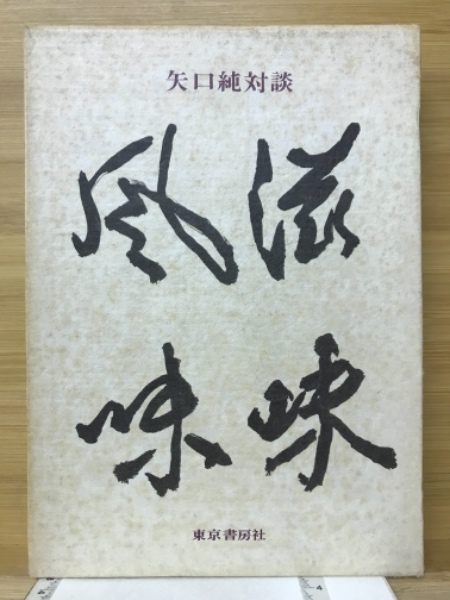 矢口純対談
滋味
風味
東京書房社